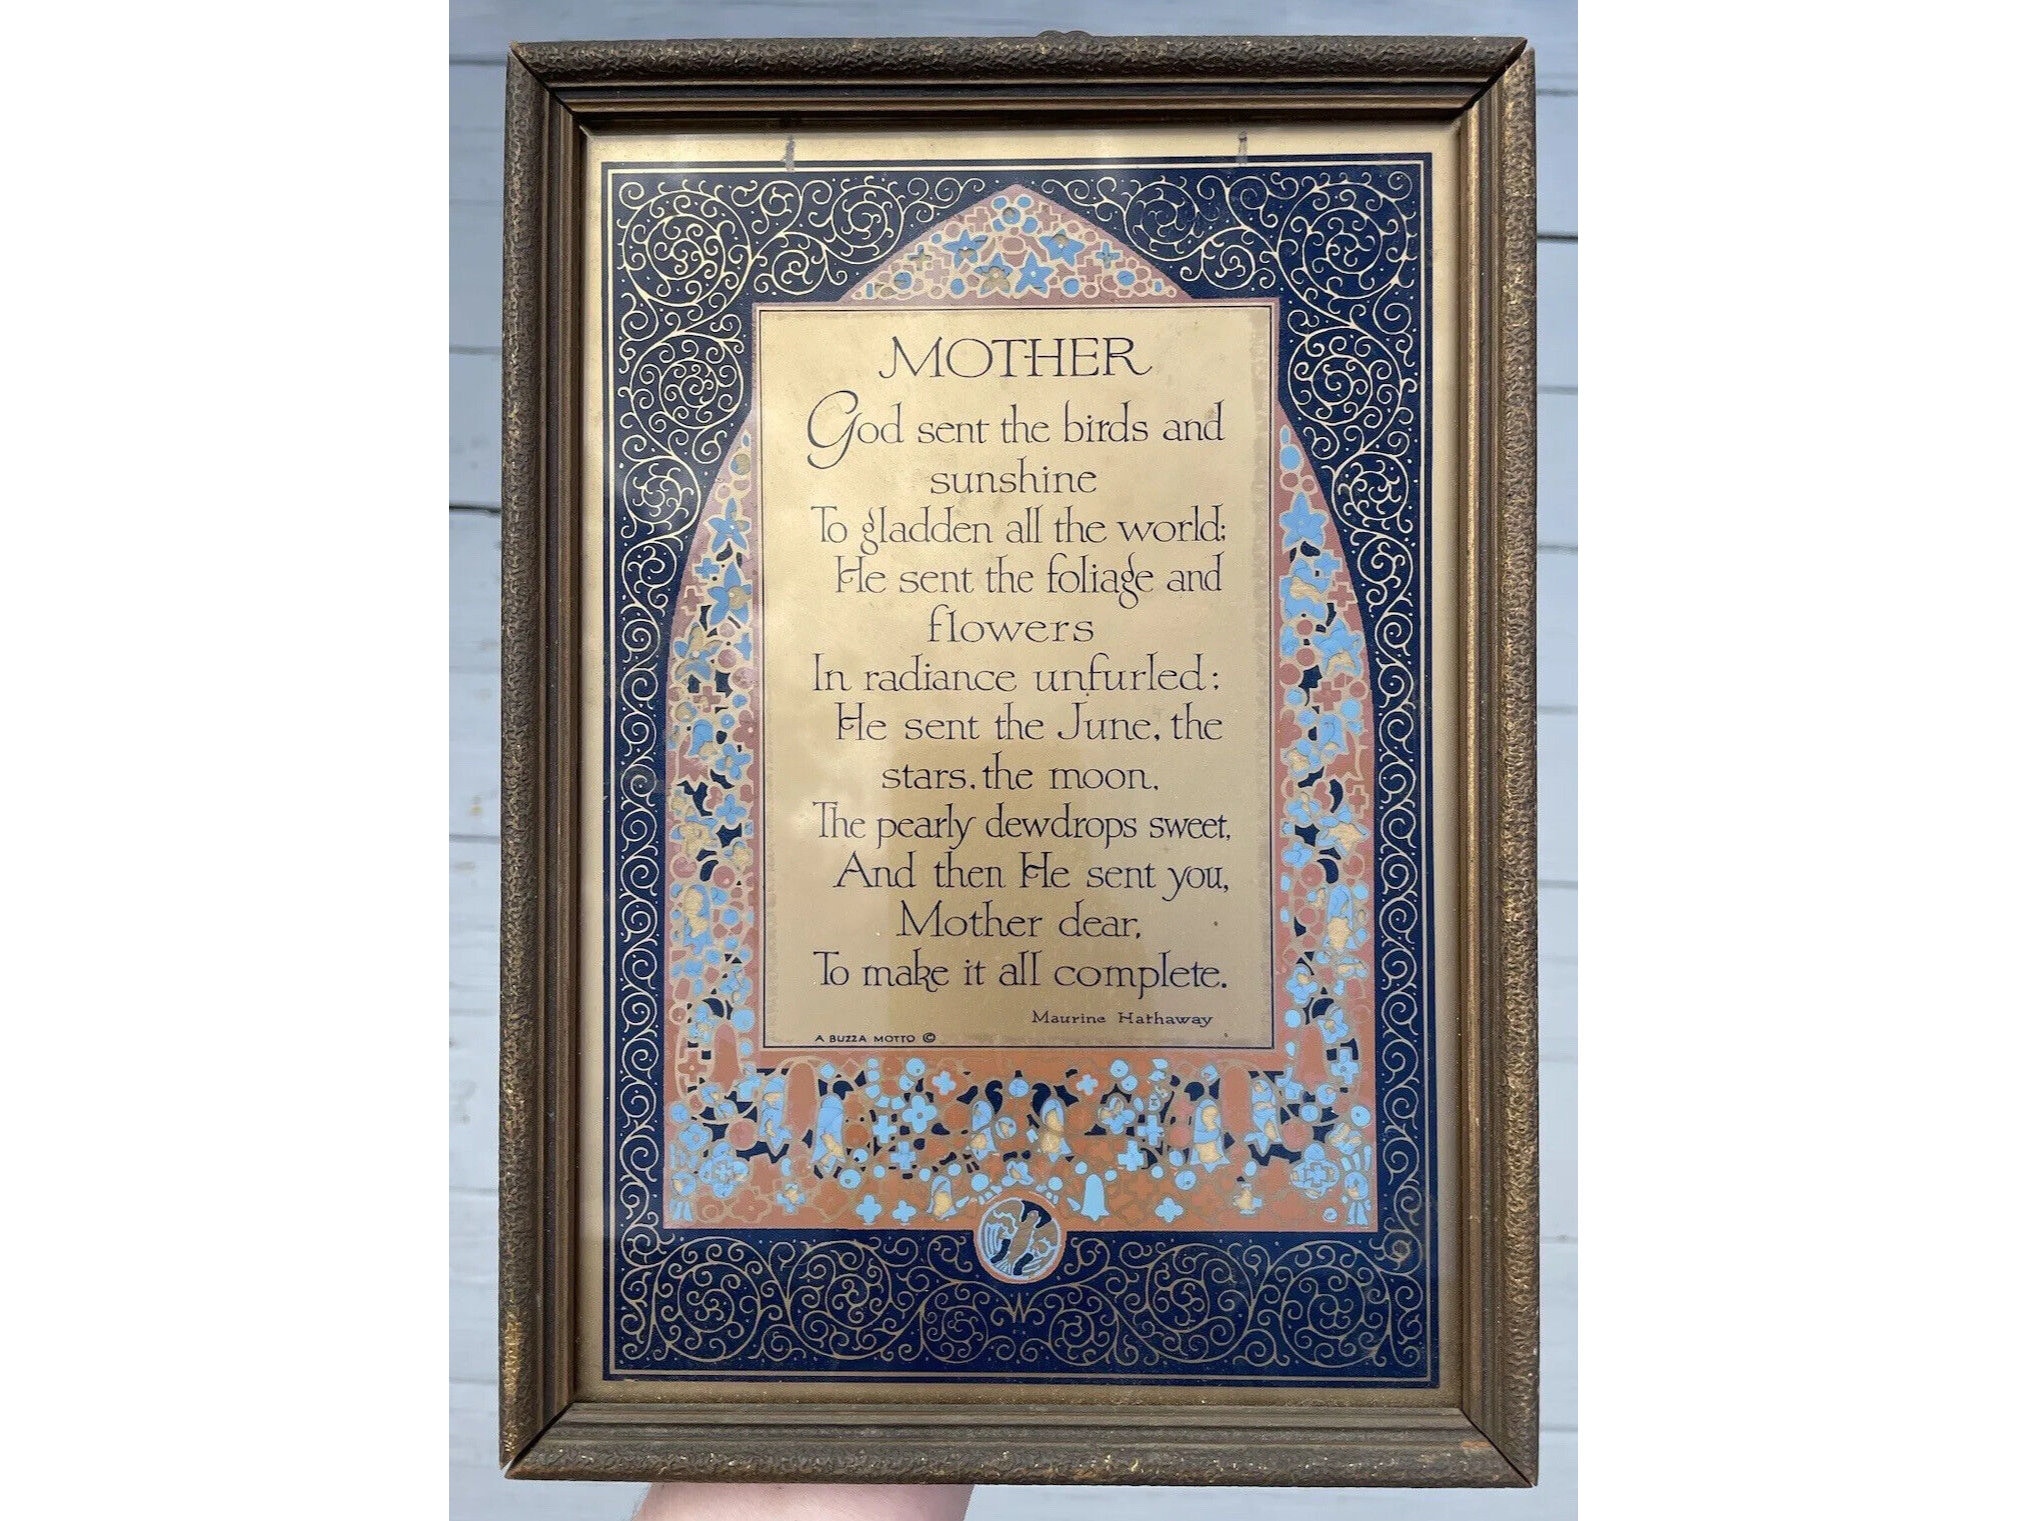 MOTHER
God sent the birds and
sunshine
To gladden all the world;
He sent the foliage and
flowers
In radiance unfurled;
He sent the June, the
stars, the moon,
The pearly dewdrops sweet,
And then He sent you,
Mother dear,
To make it all complete.
Maurine Hathaway
A BUZZA MOTTO ©